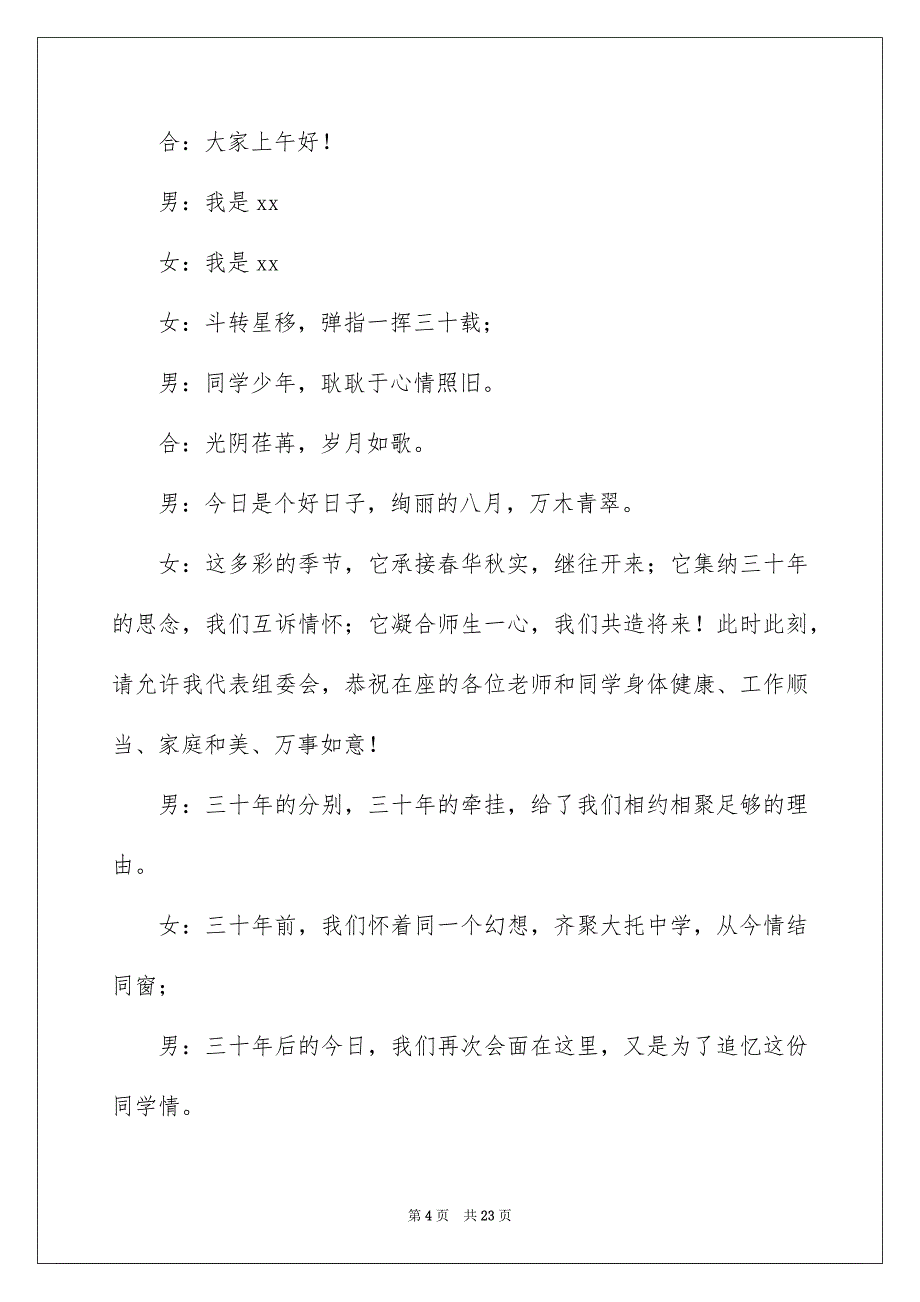 合：大家上午好！
男：我是 xx
女：我是 xx
女：斗转星移，弹指一挥三十载；
男：同学少年，耿耿于心情照旧。
合：光阴荏苒，岁月如歌。
男：今日是个好日子，绚丽的八月，万木青翠。
女：这多彩的季节，它承接春华秋实，继往开来；它集纳三十年
的思念，我们互诉情怀；它凝合师生一心，我们共造将来！此时此刻，
请允许我代表组委会，恭祝在座的各位老师和同学身体健康、工作顺
当、家庭和美、万事如意！
男：三十年的分别，三十年的牵挂，给了我们相约相聚足够的理
由。
女：三十年前，我们怀着同一个幻想，齐聚大托中学，从今情结
同窗；
男：三十年后的今日，我们再次会面在这里，又是为了追忆这份
同学情。
第 4 页 共 23 页